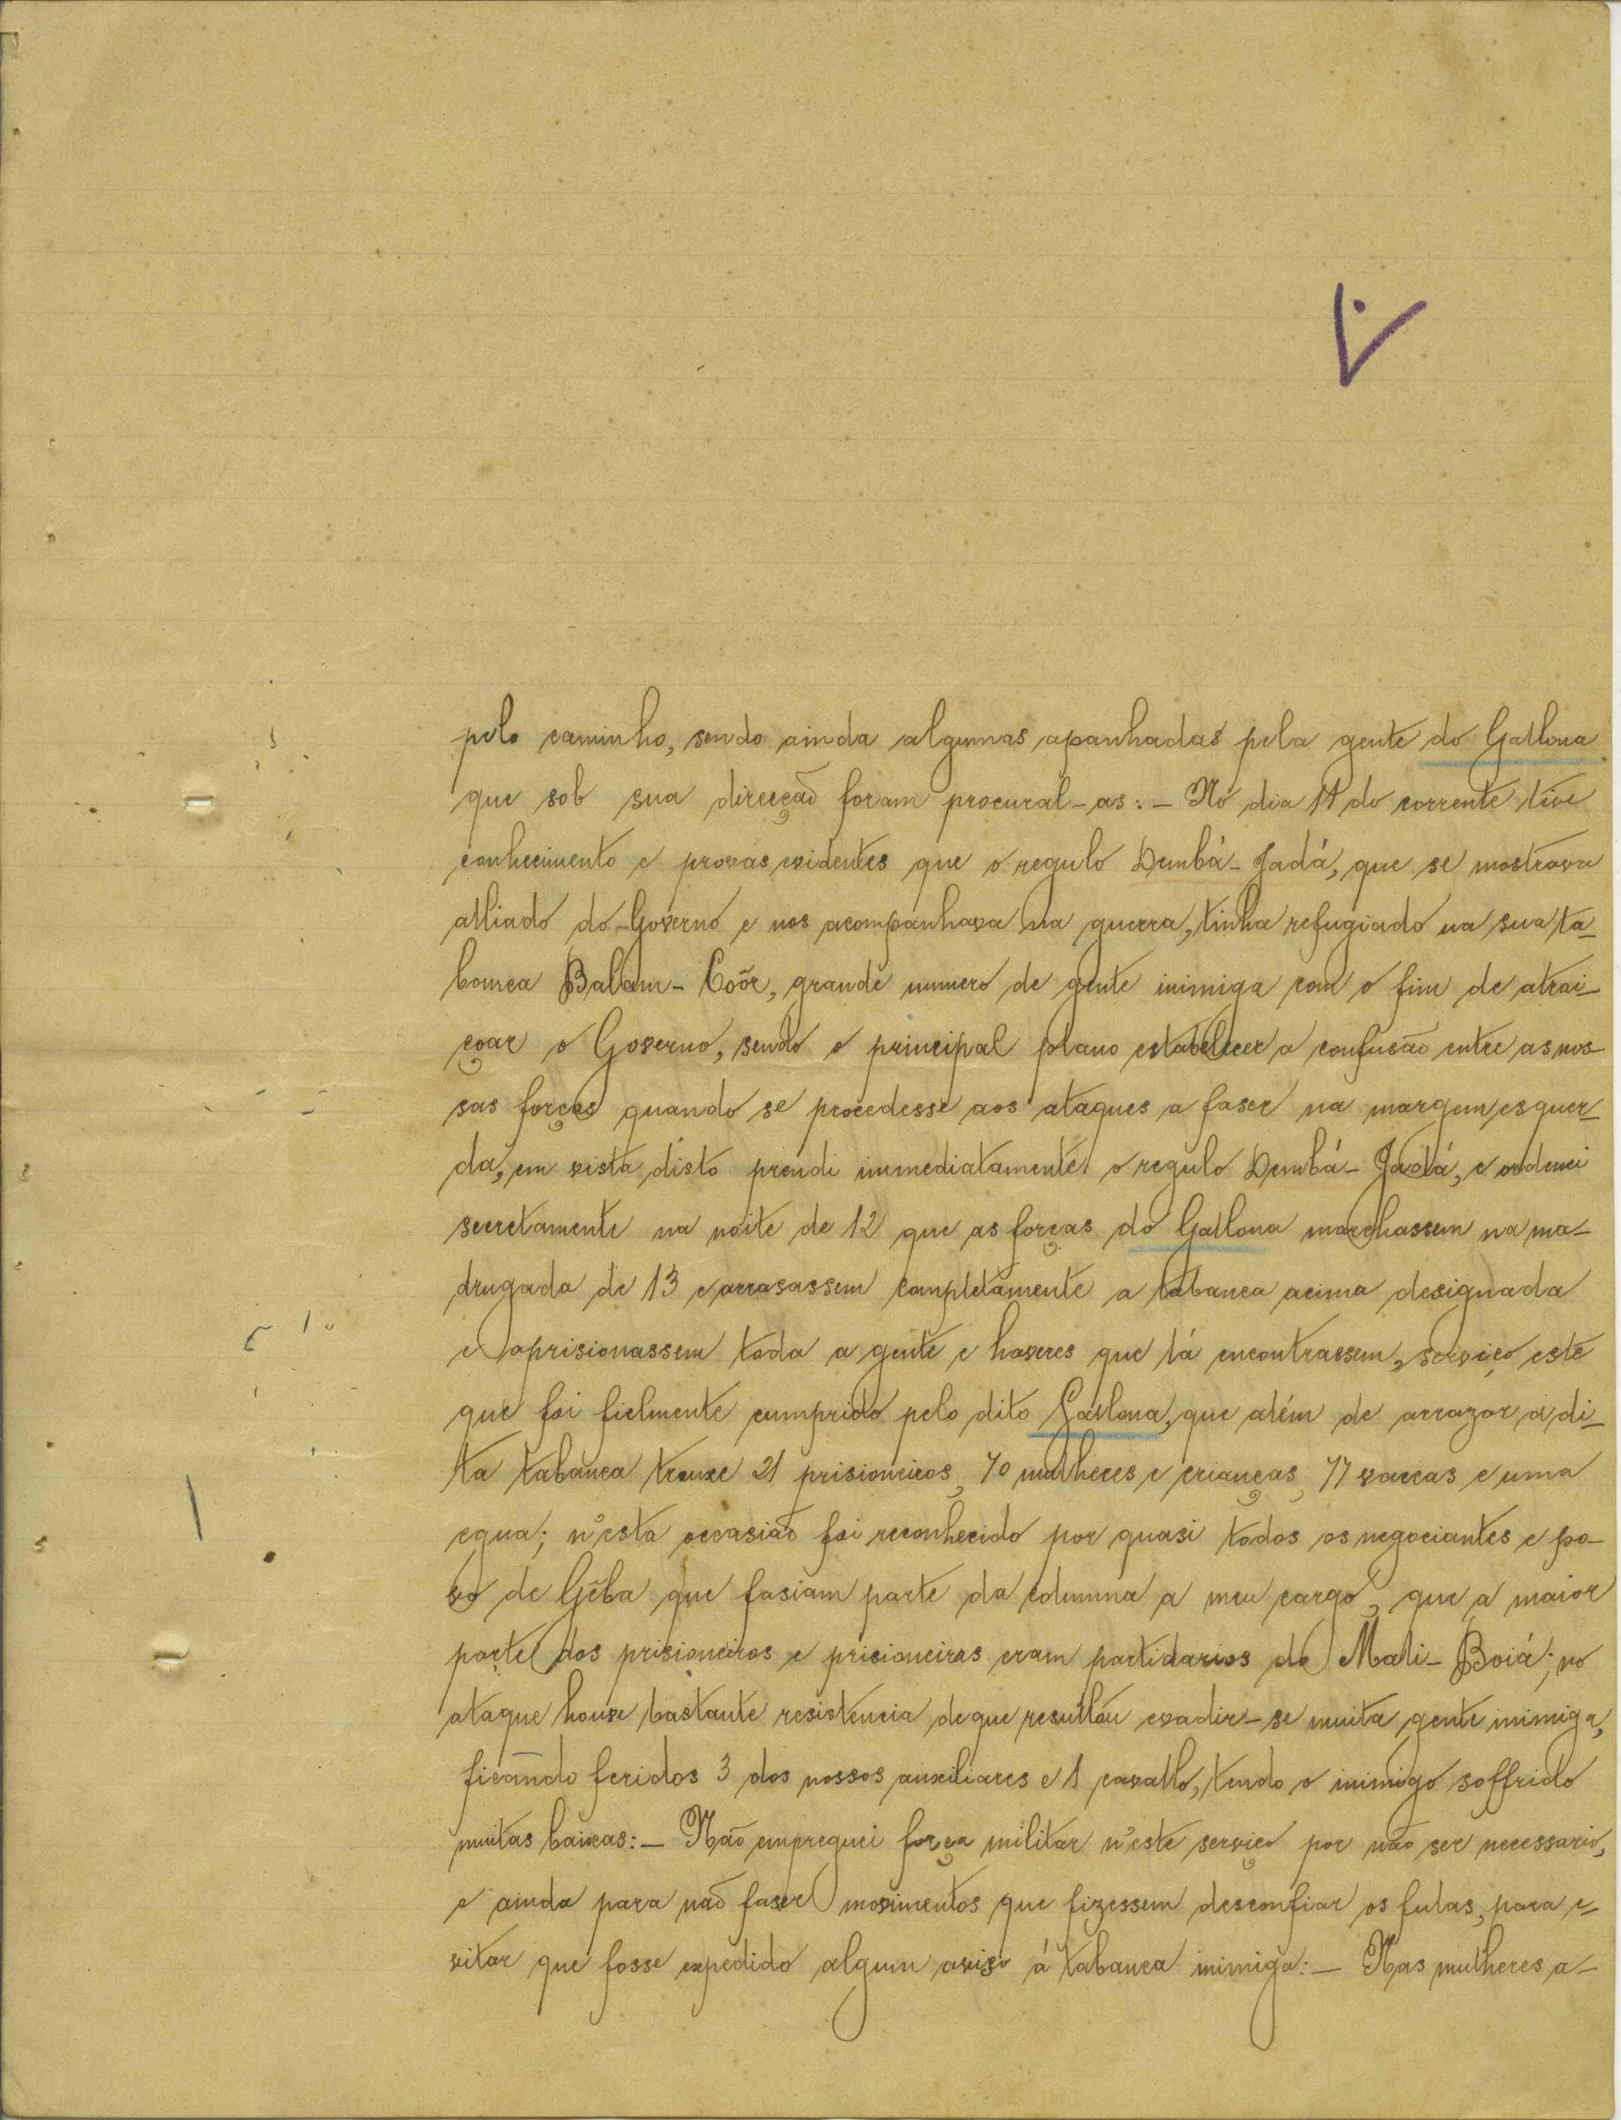 pelo caminho, sendo ainda algumas apanhadas pela gente do Gallona
que sob sua direcção foram procural-as:- No dia 11 do corrente tive
conhecimento e provas evidentes que o regulo Dembá-Jadá, que se mostrava
alliado do Governo e nos acompanhava na guerra, tinha refugiado na sua ta-
banca Balam-Coôr, grande numero de gente inimiga com o fim de atrai-
çoar o Governo, sendo o principal plano estabelecer a confusão entre as nos-
sas forças quando se procedesse aos ataques a faser na margem esquer-
da, em vista disto prendi immediatamente o regulo Dembá-Jadá, e ordenei
secretamente na noite de 12 que as forças do Gallona marchassem na ma-
drugada de 13 e arrasassem completamente a tabanca acima designada
e aprisionassem toda a gente e haveres que lá encontrassem, serviço este
que foi fielmente cumprido pelo dito Gallona, que além de arrazar a di-
ta tabanca trouxe 21 prisioneiros, 70 mulheres e crianças, 77 vaccas e uma
egua; n'esta occasião foi reconhecido por quasi todos os negociantes e po-
vo de Gêba que fasiam parte da columna a meu cargo, que a maior
parte dos prisioneiros e prisioneiras eram partidarios de Mali-Boiá; no
ataque houve bastante resistencia de que resultou evadir-se muita gente inimiga,
ficando feridos 3 dos nossos auxiliares e 1 cavallo, tendo o inimigo soffrido
muitas baixas:- Não empreguei força militar n'este serviço por não ser necessario,
e ainda para não faser movimentos que fizessem desconfiar os fulas, para e-
vitar que fosse expedido algum aviso á tabanca inimiga:- Nas mulheres a-